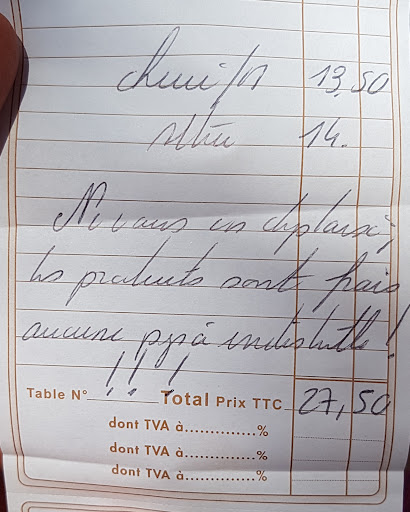 13,50
14.
Ni vous en déplaise,
les produits sont frais
aucune pizza industrielle !
!!!
Table N° Total Prix TTC 27,50
dont TVA à..............%
dont TVA à..............%
dont TVA à..............%